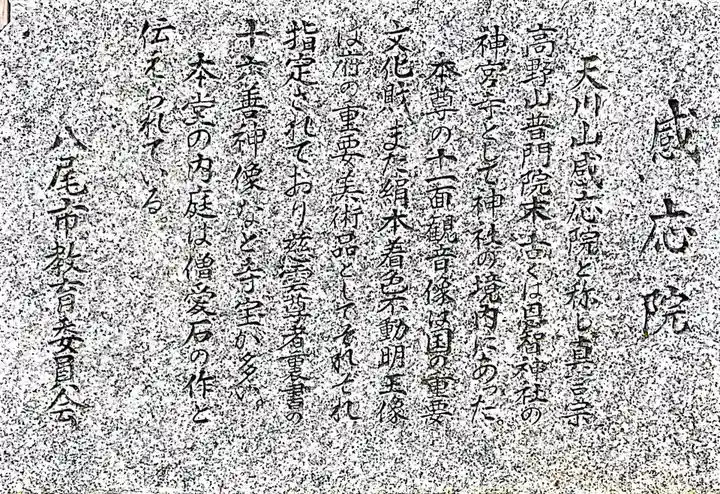 感応院
天川山感応院と称し真言宗
高野山普門院末 古くは恩智神社の
神宮寺として神社の境内にあった。
本尊の十一面観音像は国の重要
文化財 また絹本着色不動明王像
は府の重要美術品としてそれぞれ
指定されており 慈雲尊者画書の
十六善神像 など寺宝が多い。
本堂の内庭は僧愛石の作と
伝えられている。
八尾市教育委員会